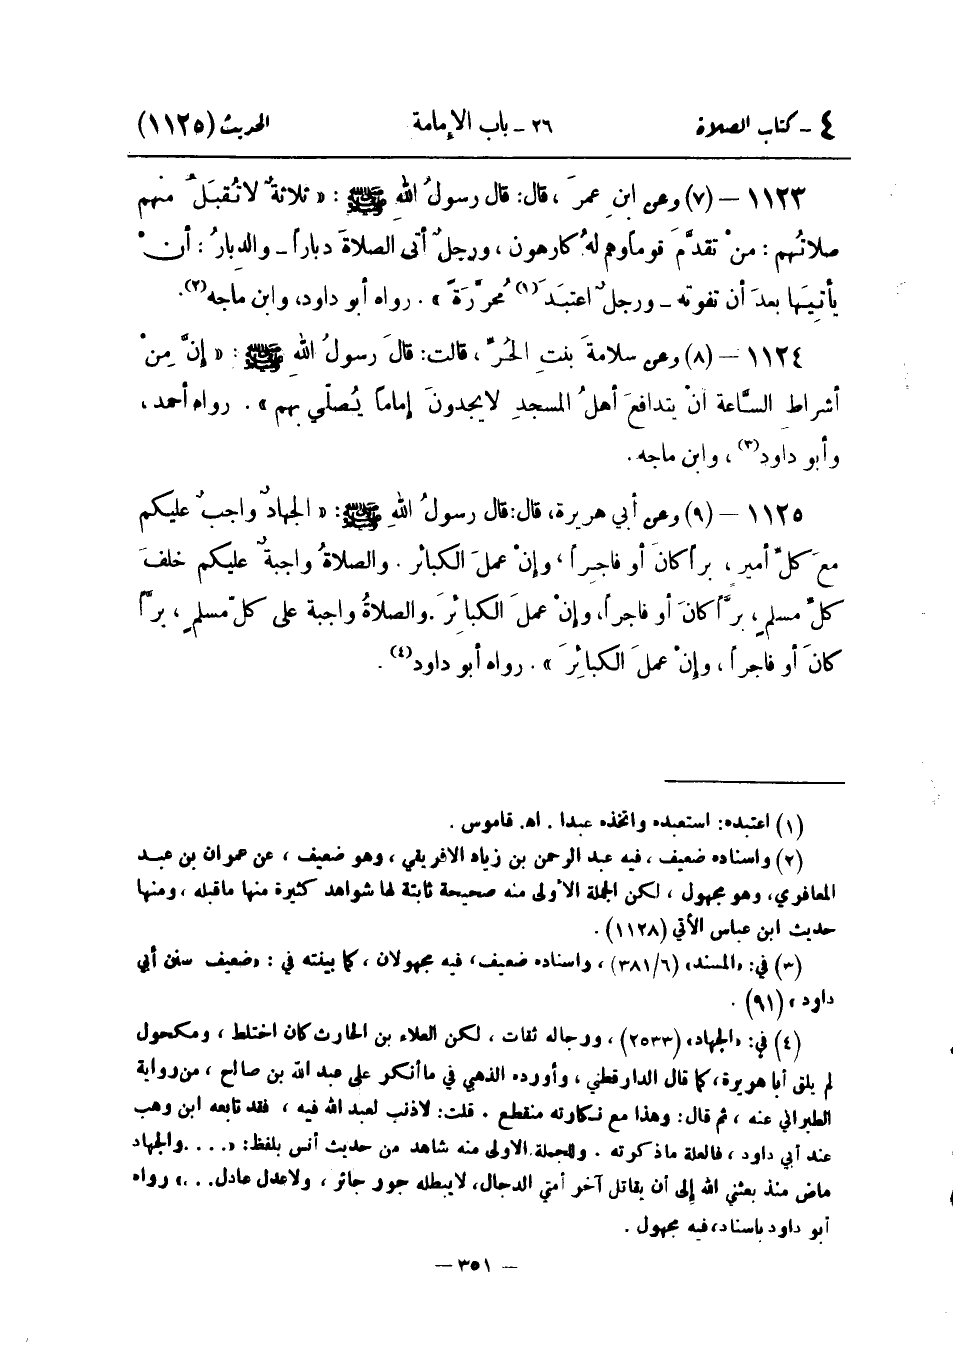 ٤ - كتاب الصلاة ٢٦ - باب الإمامة الحديث (١١٢٥)
١١٢٣ - (٧) وعن ابنِ عمرَ ، قال: قال رسولُ اللهِ ﷺ : « ثلاثةٌ لا تُقبَلُ منهم
صلاتُهم : منْ تقدَّمَ قوماً وهم لهُ كارهون ، ورجلٌ أتى الصلاةَ دباراً - والدِبارُ : أنْ
يأتيَها بعدَ أن تفوته - ورجلٌ اعتبَدَ (١) مُحرَّرَةً » . رواه أبو داود، وابن ماجه(٢).
١١٢٤ - (٨) وعن سلامةَ بنتِ الحُرِّ ، قالت: قالَ رسولُ اللهِ ﷺ : « إنَّ مِنْ
أشراطِ السَّاعة أنْ يتدافعَ أهلُ المسجدِ لا يجدونَ إماماً يُصلّي بهم » . رواه أحمد ،
وأبو داود(٣) ، وابن ماجه .
١١٢٥ - (٩) وعن أبي هريرة، قال: قال رسولُ اللهِ ﷺ : « الجهادُ واجبٌ عليكم
معَ كلِّ أميرٍ ، براً كانَ أو فاجراً ، وإنْ عملَ الكبائر . والصلاةُ واجبةٌ عليكم خلفَ
كلِّ مسلمٍ ، برَّاً كانَ أو فاجراً، وإنْ عملَ الكبائِرَ . والصلاةُ واجبة على كلّ مسلمٍ ، برَّاً
كانَ أو فاجراً ، وإنْ عملَ الكبائِرَ » . رواه أبو داود(٤) .
(١) اعتبده: استعبده واتخذه عبدا . اهـ قاموس .
(٢) واسناده ضعيف ، فيه عبد الرحمن بن زياد الافريقي ، وهو ضعيف ، عن عمران بن عبد
المعافري، وهو مجهول ، لكن الجملة الأولى منه صحيحة ثابتة لها شواهد كثيرة منها ماقبله ، ومنها
حديث ابن عباس الأتي (١١٢٨) .
(٣) في: «المسند» (٣٨١/٦) ، واسناده ضعيف، فيه مجهولان ، كما بينته في : «ضعيف سنن أبي
داود» (٩١) .
(٤) في: «الجهاد» (٢٥٣٣) ، ورجاله ثقات ، لكن العلاء بن الحارث كان اختلط ، ومكحول
لم يلق أبا هريرة، كما قال الدارقطني ، وأورده الذهبي في ما أنكر على عبد الله بن صالح ، من رواية
الطبراني عنه ، ثم قال: وهذا مع نكارته منقطع . قلت: لاذنب لعبد الله فيه ، فقد تابعه ابن وهب
عند أبي داود ، فالعلة ما ذكرته . وللجملة الاولى منه شاهد من حديث أنس بلفظ: «.... والجهاد
ماض منذ بعثني الله إلى أن يقاتل آخر أمتي الدجال، لايبطله جور جائر ، ولاعدل عادل...» رواه
أبو داود باسناد، فيه مجهول .
- ٣٥١ -